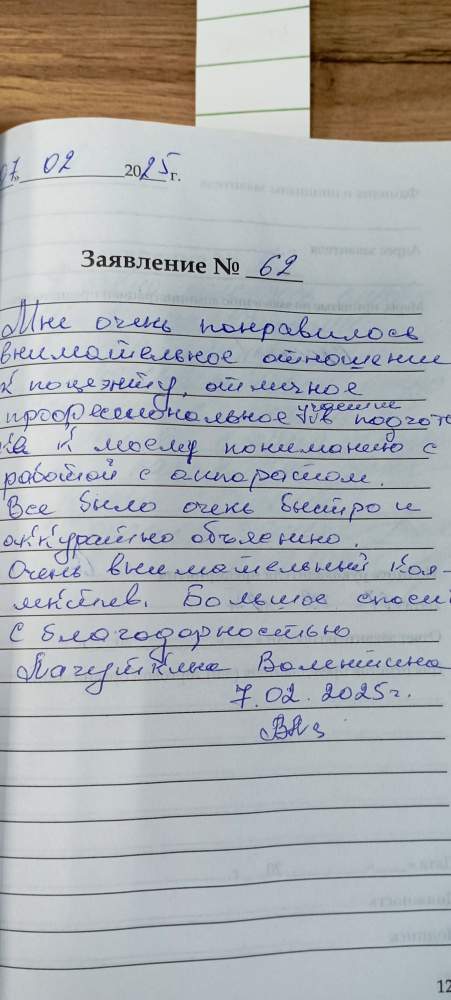 07. 02 2025 г.
Заявление № 62
Мне очень понравилось
внимательное отношение
к поцэнту, отличное
профессиональное участие в подгото
ка к моему пониманию с
работой с аппаратом.
Все было очень быстро и
аккуратно объяснино.
Очень внимательный кол-
лектив. Большое спаси
С благодарностью
Валентина
7.02.2025г.
12